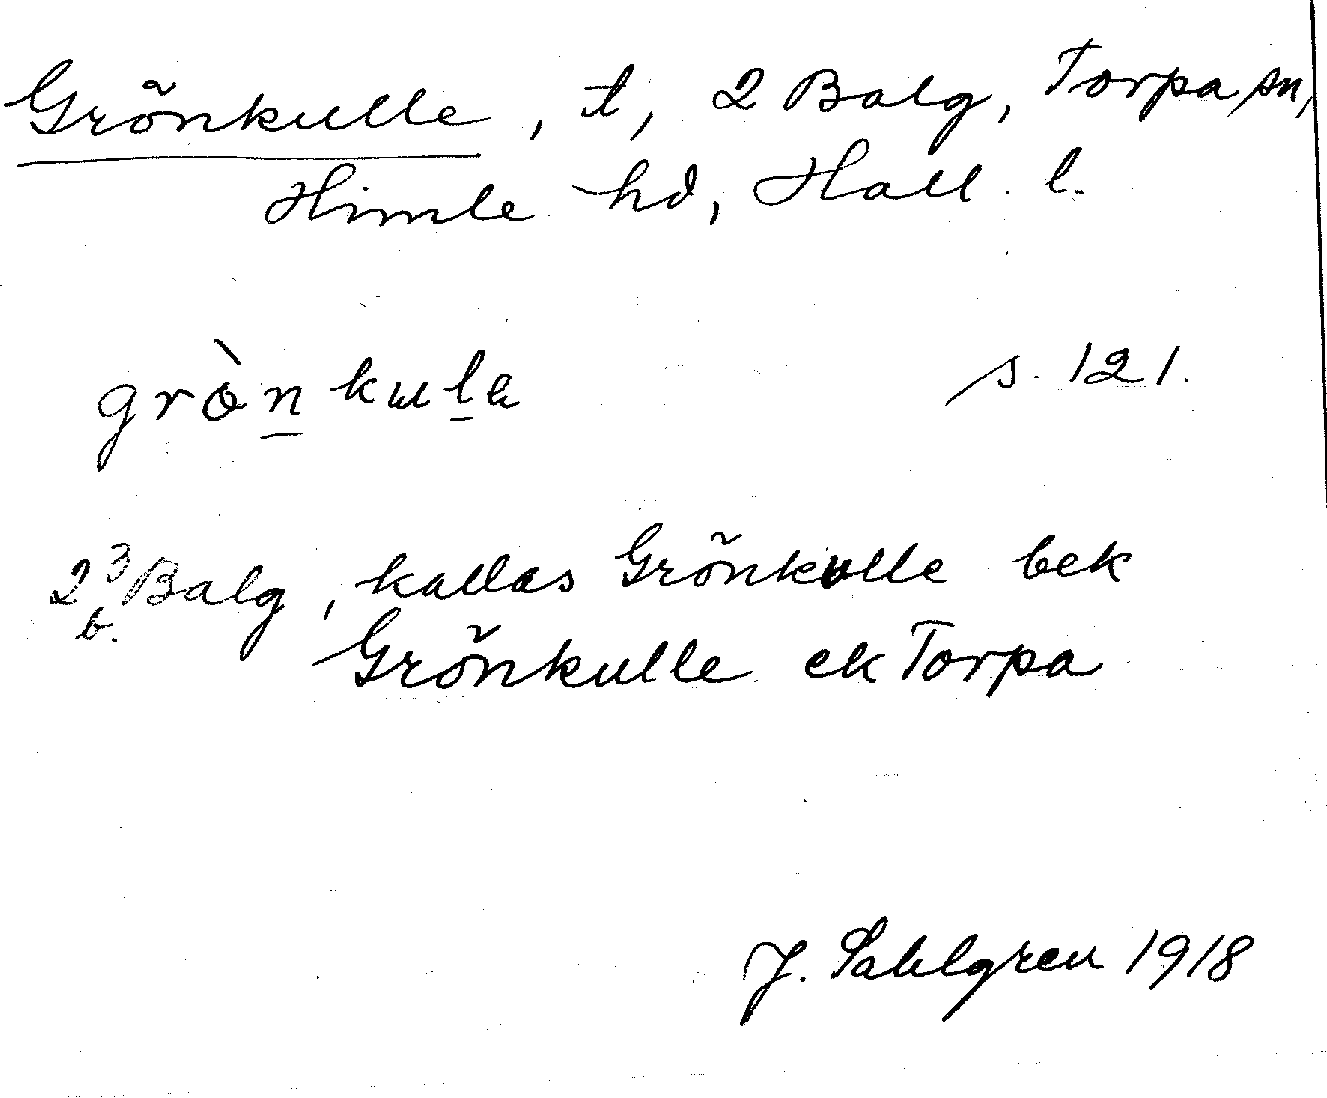 Grönkulle, t, 2 Balg, Torpa sn,
Himle hd, Hall. l.
grònkula s. 121.
2 3/6. Balg, kallas Grönkulle bek
Grönkulle ek Torpa
J. Sahlgren 1918